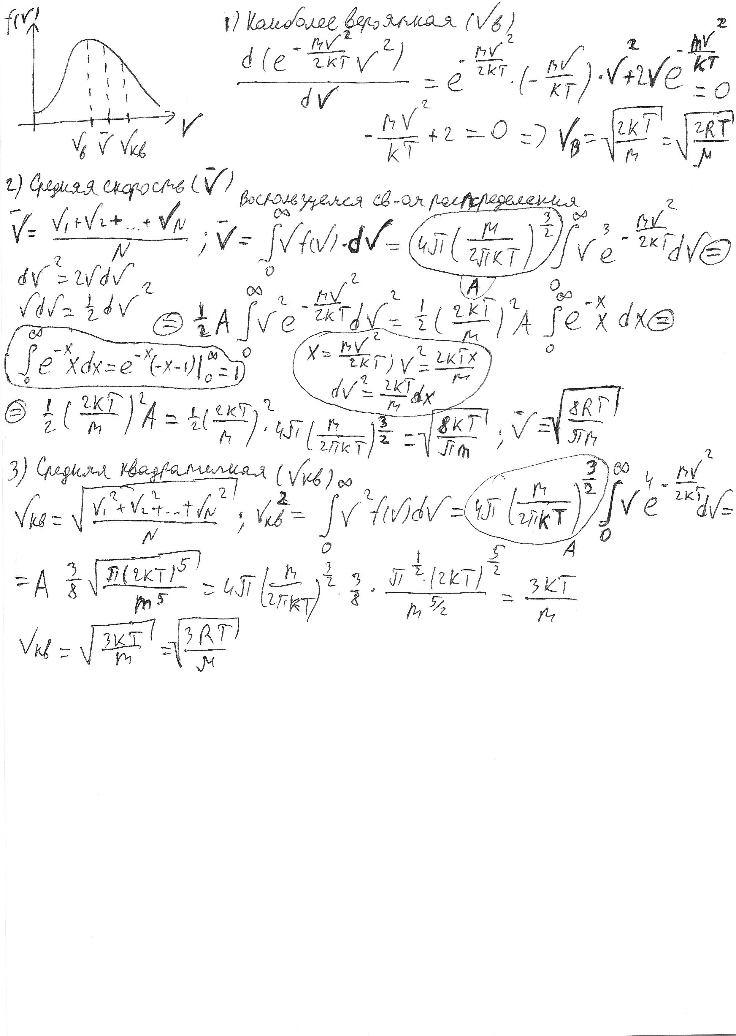 f(V)
Vв V̄ Vкв V
1) Наиболее вероятная (Vв)
d(e^(-mV²/2kT) V²)/dV = e^(-mV²/2kT) · (-mV/kT) · V² + 2V e^(-mV²/kT) = 0
-mV²/kT + 2 = 0 => Vв = √(2kT/m) = √(2RT/μ)
2) Средняя скорость (V̄)
Воспользуемся св-ом распределения
V̄ = (V₁+V₂+...+V_N)/N ; V̄ = ∫₀^∞ V f(V)·dV = 4π(m/2πkT)^(3/2) ∫₀^∞ V³ e^(-mV²/2kT) dV =
A
dV² = 2VdV
VdV = ½ dV²
= ½ A ∫₀^∞ V² e^(-mV²/2kT) dV² = ½ (2kT/m)² A ∫₀^∞ e^(-x) x dx =
∫₀^∞ e^(-x) x dx = e^(-x)(-x-1)|₀^∞ = 1
x = mV²/2kT ; V² = 2kTx/m
dV² = 2kT/m dx
= ½ (2kT/m)² A = ½ (2kT/m)² · 4π(m/2πkT)^(3/2) = √(8kT/πm) ; V̄ = √(8RT/πm)
3) Средняя квадратичная (Vкв)
Vкв = √((V₁²+V₂²+...+V_N²)/N) ; Vкв² = ∫₀^∞ V² f(V) dV = 4π(m/2πkT)^(3/2) ∫₀^∞ V⁴ e^(-mV²/2kT) dV =
A
= A 3/8 √(π(2kT)⁵/m⁵) = 4π(m/2πkT)^(3/2) 3/8 · π^(1/2)·(2kT)^(5/2)/m^(5/2) = 3kT/m
Vкв = √(3kT/m) = √(3RT/μ)